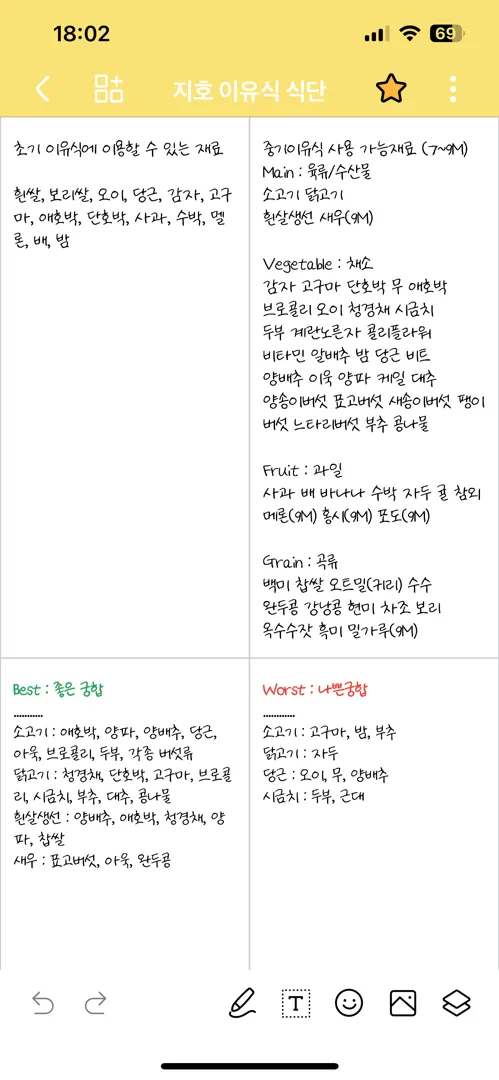 18:02
69
지호 이유식 식단
초기 이유식에 이용할 수 있는 재료
흰쌀, 보리쌀, 오이, 당근, 감자, 고구
마, 애호박, 단호박, 사과, 수박, 멜
론, 배, 밤
중기이유식 사용 가능재료 (7~9M)
Main : 육류/수산물
소고기 닭고기
흰살생선 새우(9M)
Vegetable : 채소
감자 고구마 단호박 무 애호박
브로콜리 오이 청경채 시금치
두부 계란노른자 콜리플라워
비타민 알배추 밤 당근 비트
양배추 아욱 양파 케일 대추
양송이버섯 표고버섯 새송이버섯 팽이
버섯 느타리버섯 부추 콩나물
Fruit : 과일
사과 배 바나나 수박 자두 귤 참외
메론(9M) 홍시(9M) 포도(9M)
Grain : 곡류
백미 찹쌀 오트밀(귀리) 수수
완두콩 강낭콩 현미 차조 보리
옥수수잣 흑미 밀가루(9M)
Best : 좋은 궁합
...........
소고기 : 애호박, 양파, 양배추, 당근,
아욱, 브로콜리, 두부, 각종 버섯류
닭고기 : 청경채, 단호박, 고구마, 브로콜
리, 시금치, 부추, 대추, 콩나물
흰살생선 : 양배추, 애호박, 청경채, 양
파, 찹쌀
새우 : 표고버섯, 아욱, 완두콩
Worst : 나쁜궁합
............
소고기 : 고구마, 밤, 부추
닭고기 : 자두
당근 : 오이, 무, 양배추
시금치 : 두부, 근대
T